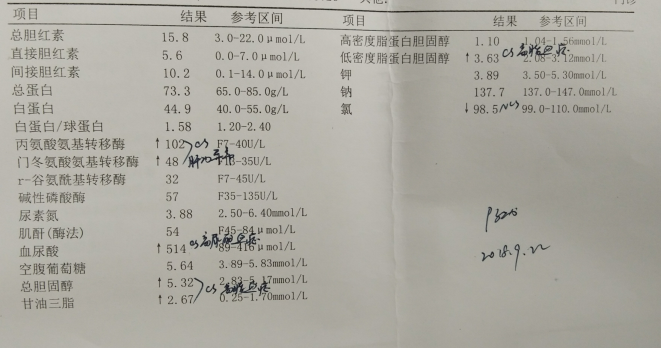 项目 结果 参考区间 项目 结果 参考区间
总胆红素 15.8 3.0-22.0μmol/L 高密度脂蛋白胆固醇 1.10 1.04-1.56mmol/L
直接胆红素 5.6 0.0-7.0μmol/L 低密度脂蛋白胆固醇 ↑ 3.63 2.08-3.12mmol/L
CS 高脂血症
间接胆红素 10.2 0.1-14.0μmol/L 钾 3.89 3.50-5.30mmol/L
总蛋白 73.3 65.0-85.0g/L 钠 137.7 137.0-147.0mmol/L
白蛋白 44.9 40.0-55.0g/L 氯 ↓ 98.5 NCS 99.0-110.0mmol/L
白蛋白/球蛋白 1.58 1.20-2.40
丙氨酸氨基转移酶 ↑ 102 CS F7-40U/L
门冬氨酸氨基转移酶 ↑ 48 F13-35U/L
r-谷氨酰基转移酶 32 F7-45U/L
碱性磷酸酶 57 F35-135U/L
尿素氮 3.88 2.50-6.40mmol/L
肌酐(酶法) 54 F45-84μmol/L
CS 高尿酸血症
血尿酸 ↑ 514 89-416μmol/L
空腹葡萄糖 5.64 3.89-5.83mmol/L
总胆固醇 ↑ 5.32 2.83-5.17mmol/L
CS 高脂血症
甘油三脂 ↑ 2.67 0.25-1.70mmol/L
2018.9.22